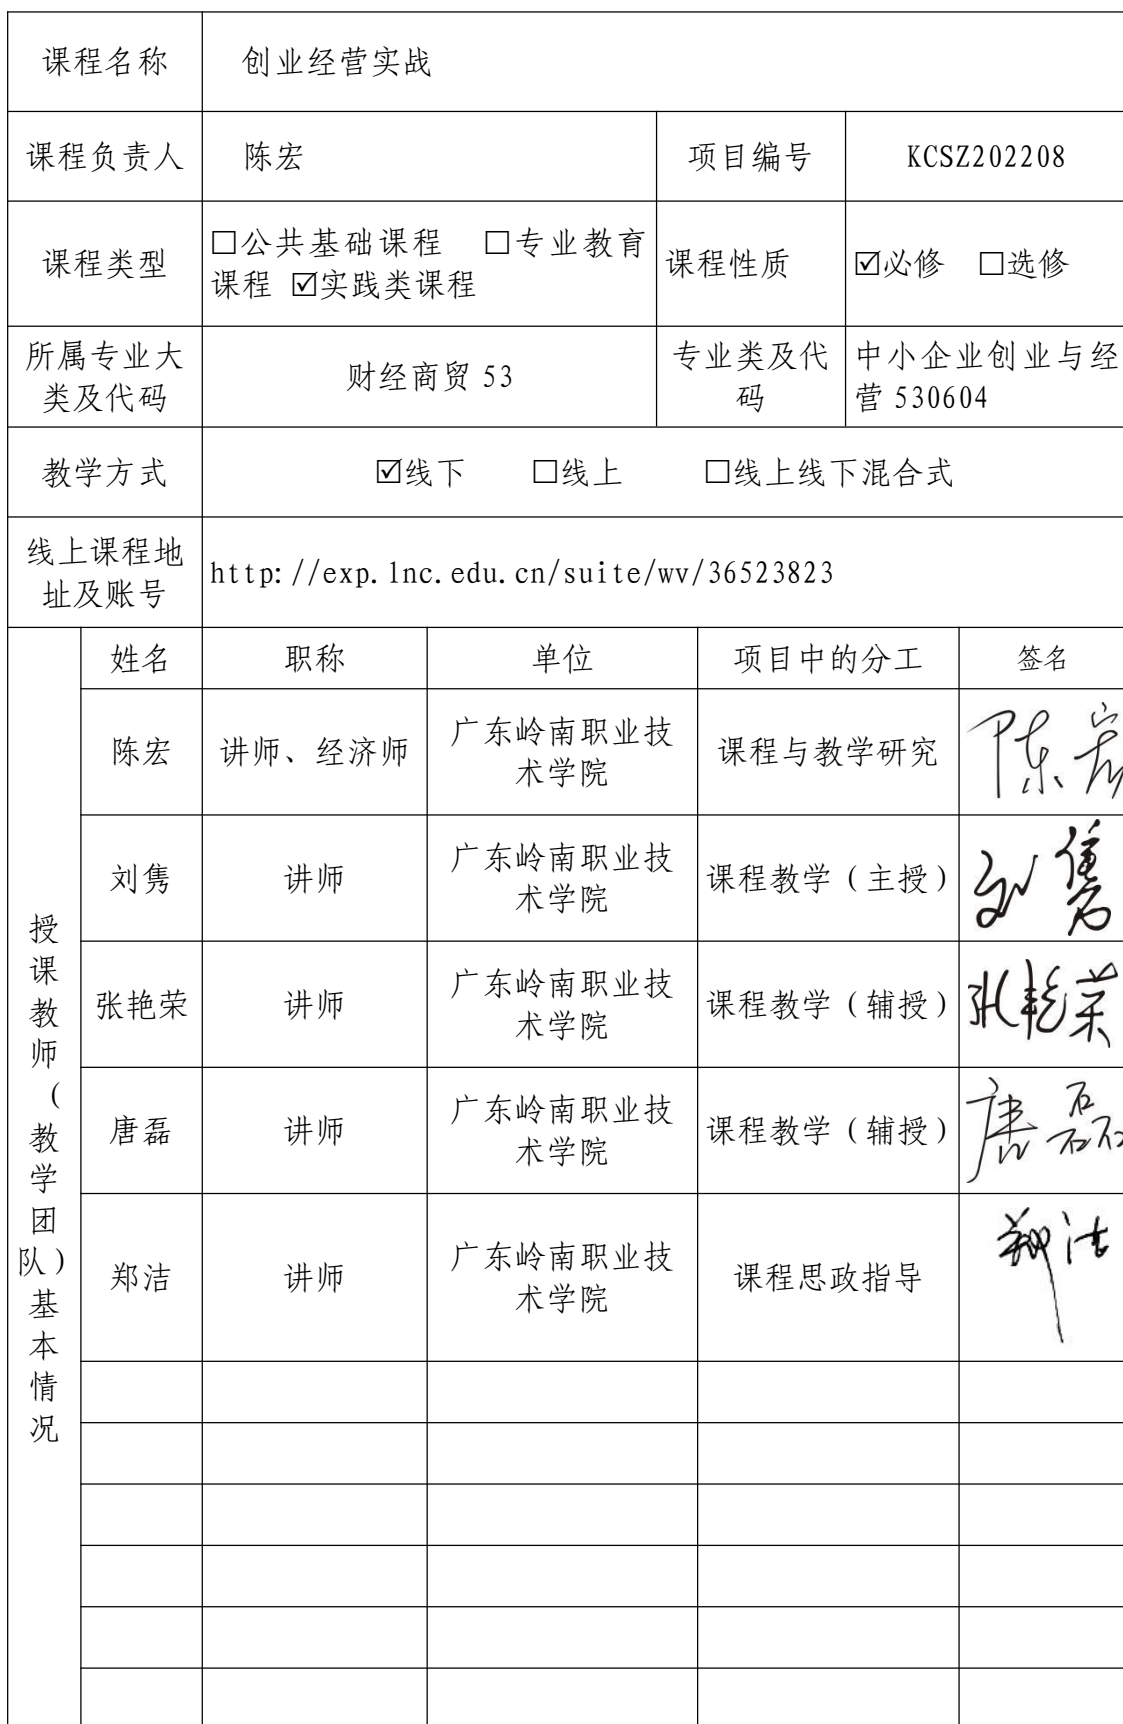 课程名称 创业经营实战
课程负责人 陈宏 项目编号 KCSZ202208
课程类型 □公共基础课程 □专业教育
课程 ☑实践类课程 课程性质 ☑必修 □选修
所属专业大
类及代码 财经商贸 53 专业类及代
码 中小企业创业与经
营 530604
教学方式 ☑线下 □线上 □线上线下混合式
线上课程地
址及账号 http://exp.lnc.edu.cn/suite/wv/36523823
授课教师（教学团队）基本情况
姓名 职称 单位 项目中的分工 签名
陈宏 讲师、经济师 广东岭南职业技
术学院 课程与教学研究 陈宏
刘隽 讲师 广东岭南职业技
术学院 课程教学（主授） 刘隽
张艳荣 讲师 广东岭南职业技
术学院 课程教学（辅授） 张艳荣
唐磊 讲师 广东岭南职业技
术学院 课程教学（辅授） 唐磊
郑洁 讲师 广东岭南职业技
术学院 课程思政指导 郑洁